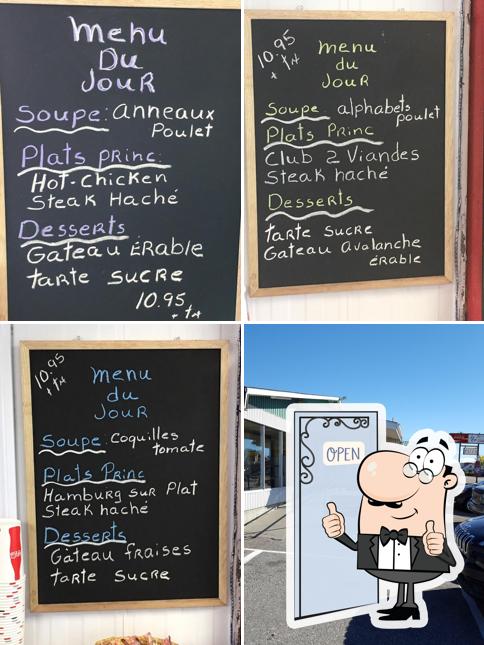 Menu
Du
Jour
Soupe: anneaux
Poulet
Plats princ.
Hot-Chicken
Steak Haché
Desserts
Gateau Érable
tarte sucre
10.95
+ tx
10.95
+ tx
menu
du
Jour
Soupe alphabets
poulet
Plats Princ
Club 2 Viandes
Steak haché
Desserts
tarte sucre
Gateau Avalanche
érable
10.95
+ tx
menu
du
Jour
Soupe: Coquilles
tomate
Plats Princ
Hamburg sur Plat
Steak haché
Desserts
Gâteau fraises
tarte sucre
OPEN